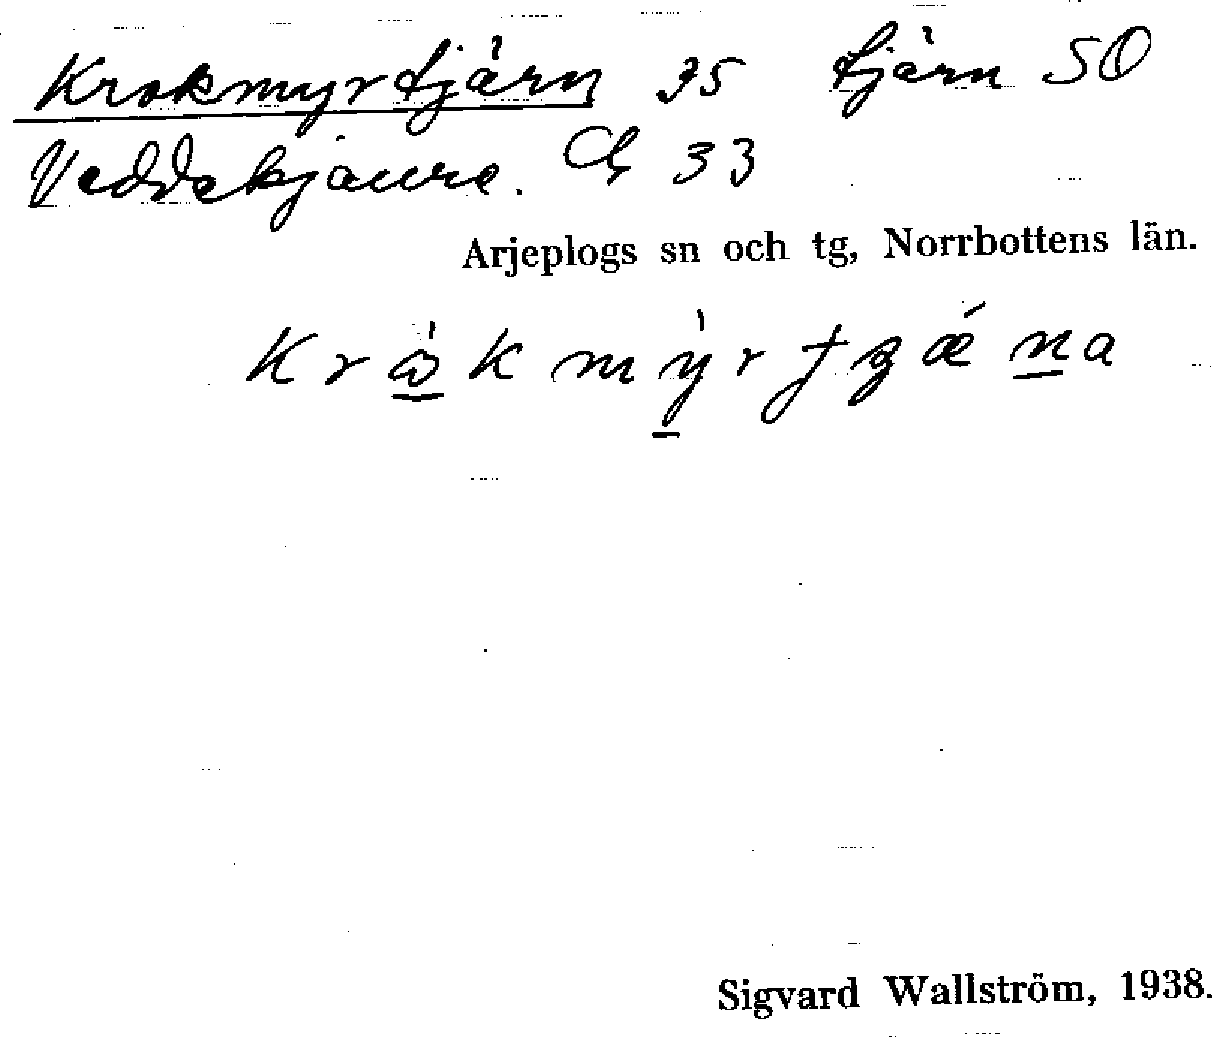 Krokmyrtjärn 35 tjärn 50
Veddekjaure. 33
Arjeplogs sn och tg, Norrbottens län.
Sigvard Wallström, 1938.